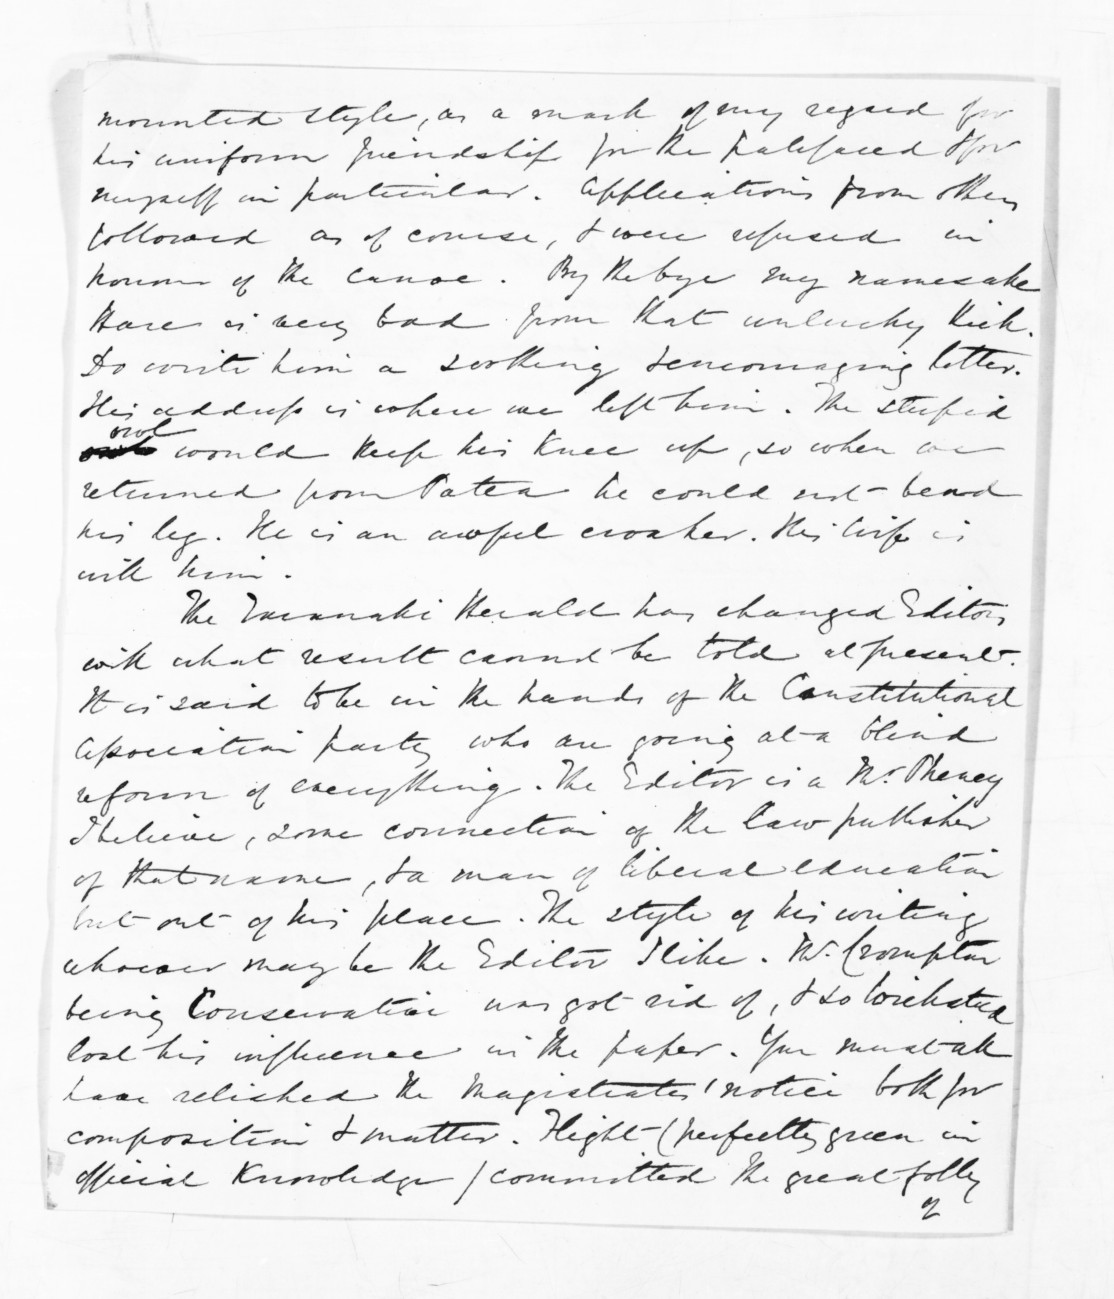 mounted style, as a mark of my regard for
his uniform friendship for the palefaced & for
myself in particular. Applications from others
followed as of course, & were refused in
honour of the canoe. By the bye my namesake
Hare is very bad from that unlucky kick.
Do write him a soothing & encouraging letter.
His address is where we left him. The stupid
owl
would keep his knee up, so when we
returned from Patea he could not bend
his leg. He is an awful croaker. His wife is
with him.
The Taranaki Herald has changed Editors
with what result cannot be told at present.
It is said to be in the hands of the Constitutional
Association party who are going at a blind
reform of everything. The Editor is a Mr. Pheney
I believe, some connection of the Law publisher
of that name, & a man of liberal education
but out of his place. The style of his writing
whoever may be the Editor I like. Mr. Crompton
being Conservative was got rid of, & so Wicksteed
lost his influence in the paper. You must all
have relished the Magistrates' notice both for
composition & matter. Flight (perfectly green in
official knowledge) committed the great folly
of